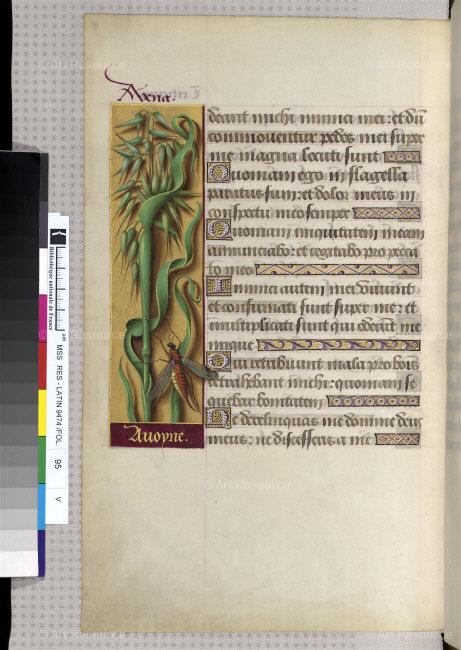 Avena.
deant michi inimici mei: et dū
commoventur pedes mei super
me magna locuti sunt
Quoniam ego in flagella
paratus sum: et dolor meus in
conspectu meo semper
Quoniam iniquitatem meam
annunciabo: et cogitabo pro pecca
to meo
Inimici autem mei vivunt
et confirmati sunt super me: et
multiplicati sunt qui oderunt me
inique
Qui retribuunt mala pro bonis
detrahebant michi: quoniam se
quebar bonitatem
Ne derelinquas me domine deus
meus: ne discesseris a me
Avoyne.
Bibliothèque nationale de France
MSS RES - LATIN 9474 /FOL.
95
V
Art Resource